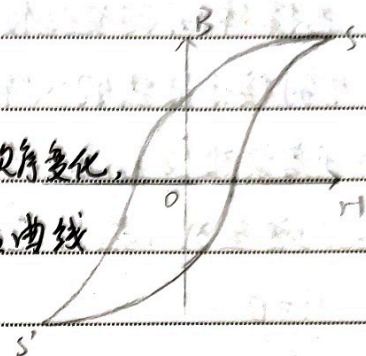 B
S
次序变化,
O
H
曲线
S'